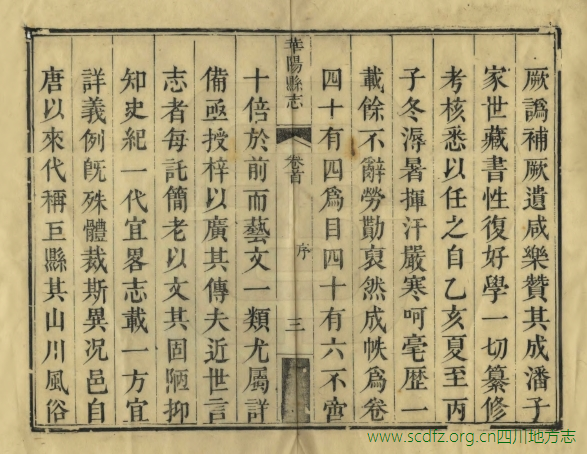 厥譌補厥遺咸樂贊其成潘子
家世藏書性復好學一切纂修
考核悉以任之自乙亥夏至丙
子冬溽暑揮汗嚴寒呵毫歷一
載餘不辭勞勩裒然成帙爲卷
四十有四爲目四十有六不啻
華陽縣志
卷首
序
三
十倍於前而藝文一類尤屬詳
備亟授梓以廣其傳夫近世言
志者每託簡老以文其固陋抑
知史紀一代宜畧志載一方宜
詳義例旣殊體裁斯異况邑自
唐以來代稱巨縣其山川風俗
www.scdfz.org.cn四川地方志